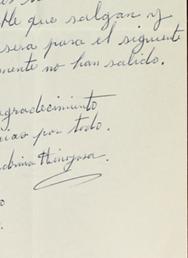 que salgan y
sera para el siguiente
mente no han salido.
agradecimiento
por todo.
Hinojosa.